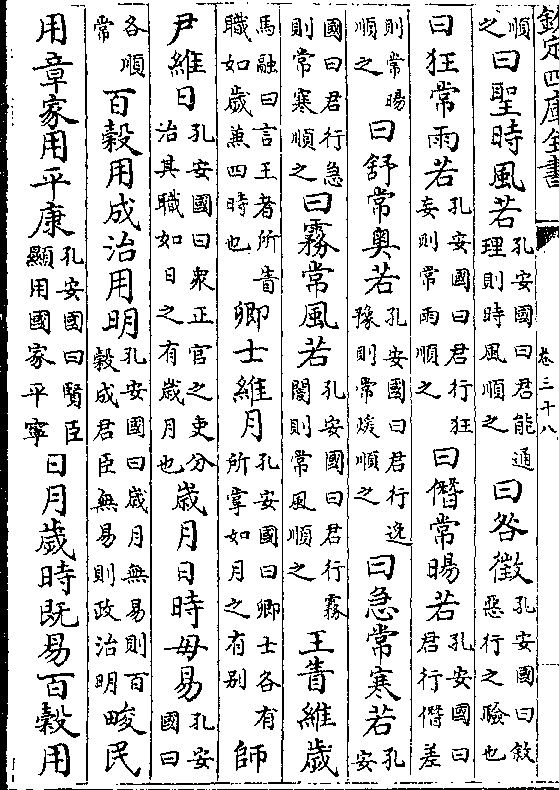 欽定四庫全書 卷三十八
順之曰聖時風若孔安國曰君能通理則時風順之曰咎徵孔安國曰敘惡行之驗也
曰狂常雨若孔安國曰君行狂妄則常雨順之曰僭常暘若孔安國曰君行僭差
則常暘順之曰舒常奥若孔安國曰君行逸豫則常燠順之曰急常寒若孔安
國曰君行急則常寒順之曰霧常風若孔安國曰君行霧闇則常風順之王眚維歲
馬融曰言王者所眚職如歲兼四時也卿士維月孔安國曰卿士各有所掌如月之有别師
尹維日孔安國曰衆正官之吏分治其職如日之有歲月也歲月日時毋易孔安國曰
各順常百榖用成治用明孔安國曰歲月無易則百榖成君臣無易則政治明畯民
用章家用平康孔安國曰賢臣顯用國家平寧日月歲時既易百榖用